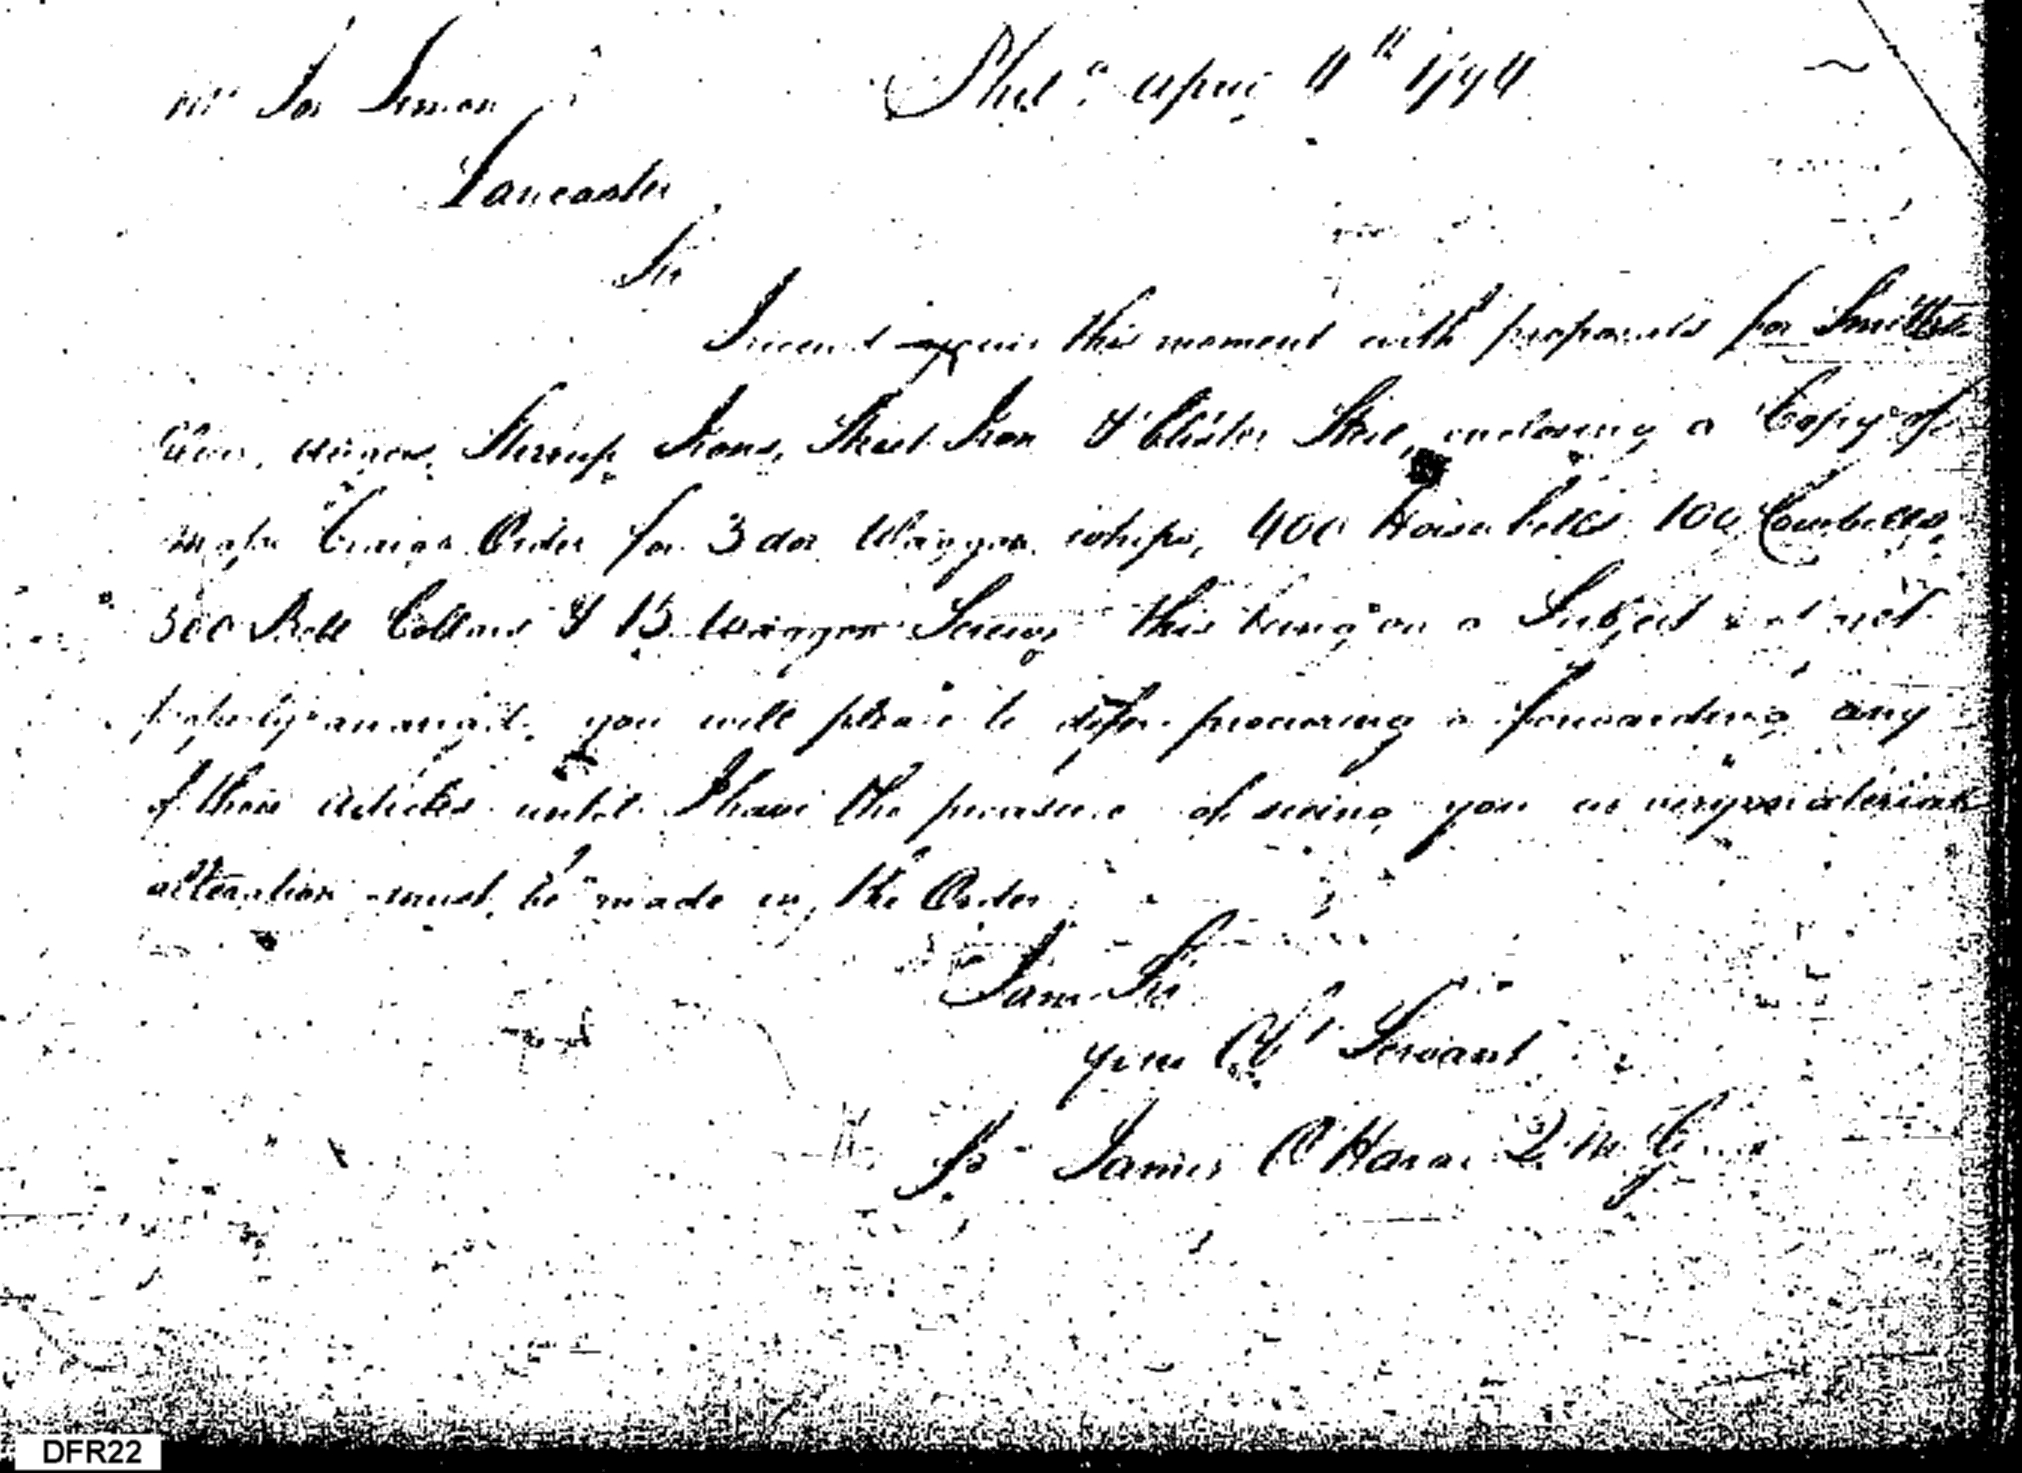 Mr Jos Simon
Philª April 4th 1794
Lancaster
Sir
I received yours this moment with proposals for Smiths
Stirrup Irons, Sheet Iron & Blister Steel, enclosing a Copy of
Major Craigs Order for 3 doz Waggon whips, 400 Horse bells 100 Cowbells,
300 Bell Collars & 15 Waggon Screws this being on a Subject not
properly arranged, you will please to defer procuring or forwarding any
of those Articles until I have the pleasure of seeing you as very material
alteration must be made in the Order
I am Sir
your Obt Servant
James O Hara Q M G
DFR22